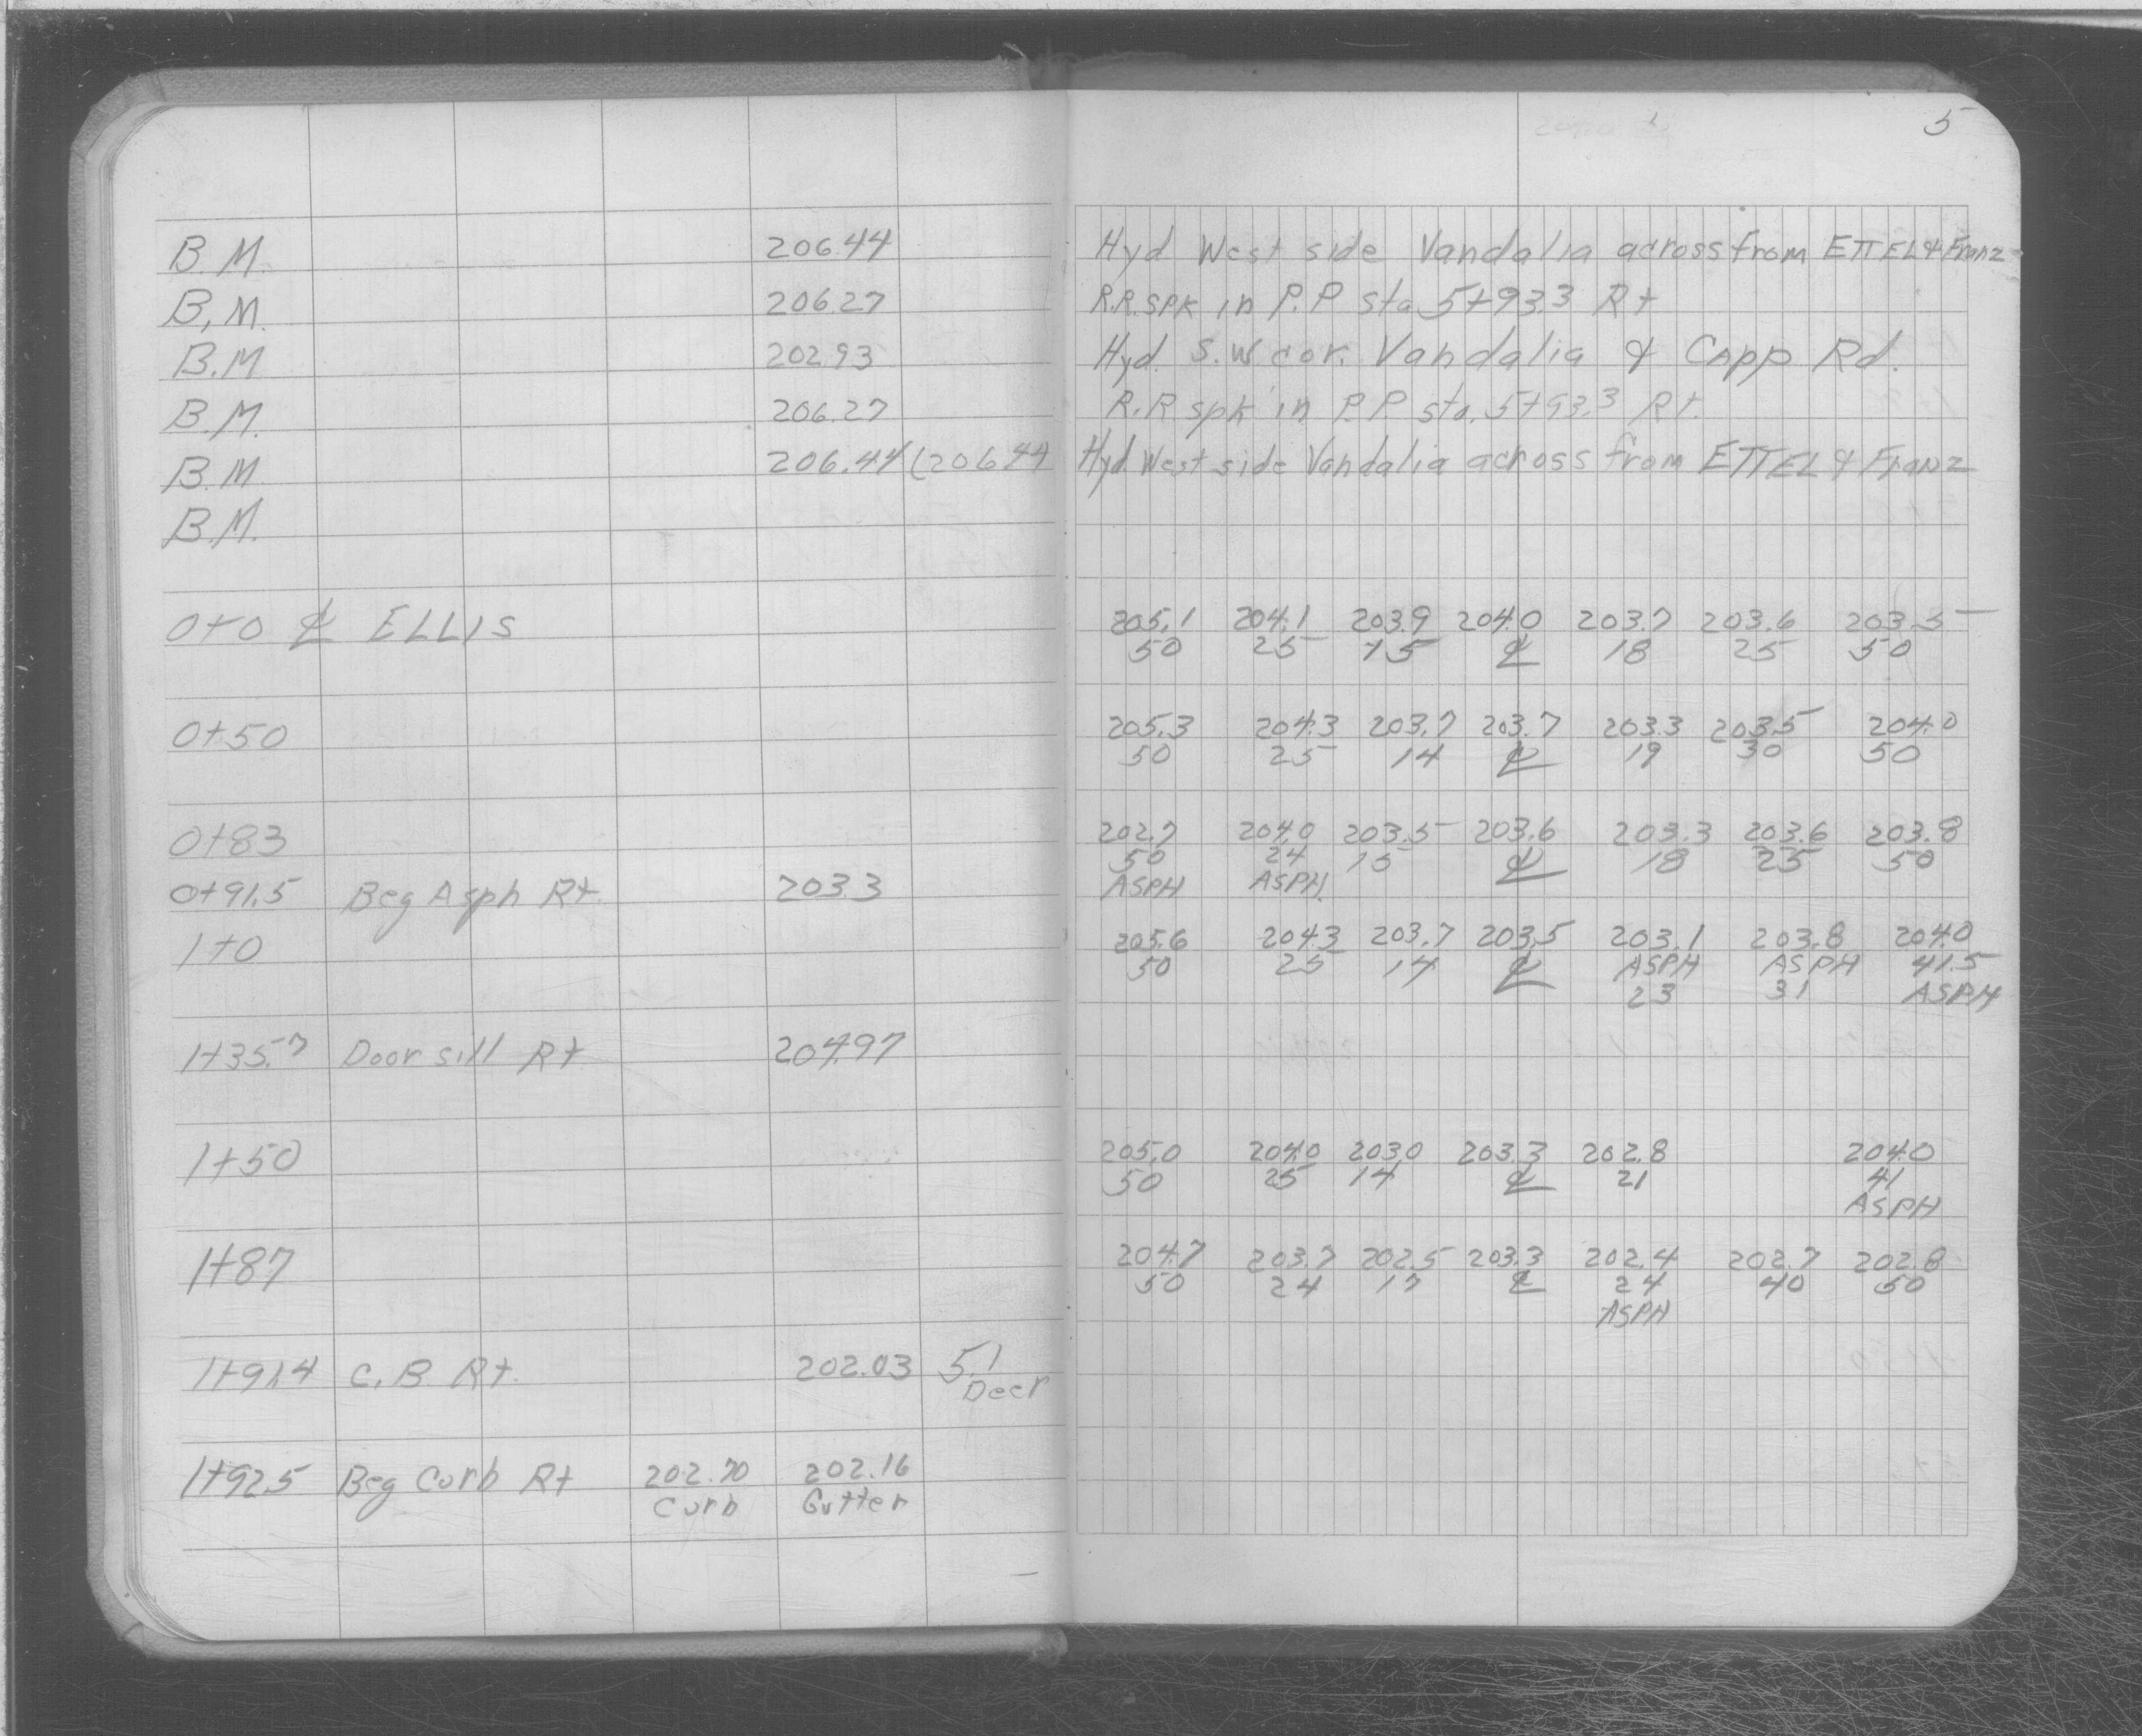 5
B.M. 206.44 Hyd West side Vandalia across from ETTEL & Franz
B.M. 206.27 R.R. spk in P.P sta 5+93.3 Rt
B.M 202.93 Hyd. S.W cor. Vandalia & Capp Rd.
B.M. 206.27 R.R spk in P.P sta. 5+93.3 Rt.
B.M. 206.44 (206.44) Hyd West side Vandalia across from ETTEL & Franz
B.M.
0+0 ℄ ELLIS 205.1 204.1 203.9 204.0 203.7 203.6 203.5
50 25 15 ℄ 18 25 50
0+50 205.3 204.3 203.7 203.7 203.3 203.5 204.0
50 25 14 ℄ 19 30 50
0+83 202.7 204.0 203.5 203.6 203.3 203.6 203.8
50 24 15 ℄ 18 25 50
0+91.5 Beg Asph Rt. 203.3 ASPH ASPH
1+0 205.6 204.3 203.7 203.5 203.1 203.8 204.0
50 25 14 ℄ ASPH ASPH 41.5
23 31 ASPH
1+35.7 Door sill Rt 204.97
1+50 205.0 204.0 203.0 203.3 202.8 204.0
50 25 14 ℄ 21 41
ASPH
1+87 204.7 203.7 202.5 203.3 202.4 202.7 202.8
50 24 17 ℄ 24 40 50
ASPH
1+91.4 C.B Rt. 202.03 5.1
Deer
1+92.5 Beg Curb Rt 202.70 202.16
Curb Gutter